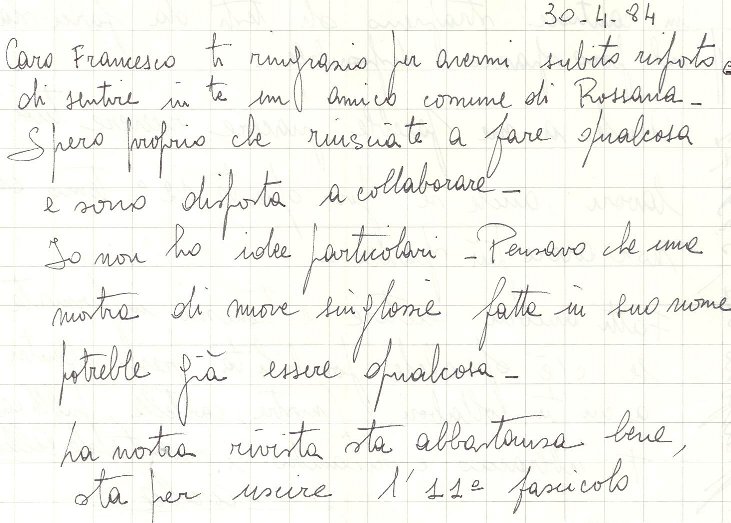 30-4-84
Caro Francesco ti ringrazio per avermi subito risposto e
di sentire in te un amico comune di Rossana-
Spero proprio che riusciate a fare qualcosa
e sono disposta a collaborare-
Io non ho idee particolari - Pensavo che una
mostra di nuove singlossie fatta in suo nome
potrebbe già essere qualcosa-
La nostra rivista sta abbastanza bene,
sta per uscire l'11º fascicolo